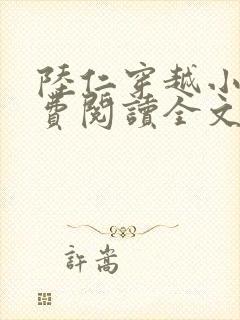 陸仁穿越小
費閱讀全文
許嵩